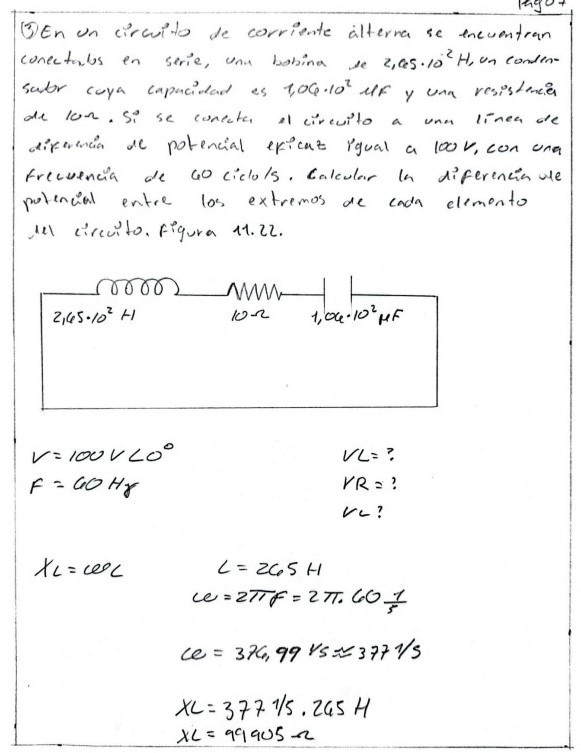 Pag 07
③ En un circuito de corriente alterna se encuentran
conectados en serie, una bobina de 2,65·10² H, un conden-
sador cuya capacidad es 1,06·10² μF y una resistencia
de 10Ω. Si se conecta el circuito a una línea de
diferencia de potencial eficaz igual a 100 V, con una
frecuencia de 60 ciclo/s. Calcular la diferencia de
potencial entre los extremos de cada elemento
del circuito. Figura 11.22.
2,65·10² H 10Ω 1,06·10² μF
V = 100 V ∠0° VL = ?
F = 60 Hz VR = ?
VC ?
XL = ωL L = 265 H
ω = 2πF = 2π. 60 1/s
ω = 376,99 1/s ≈ 377 1/s
XL = 377 1/s . 265 H
XL = 99905 Ω